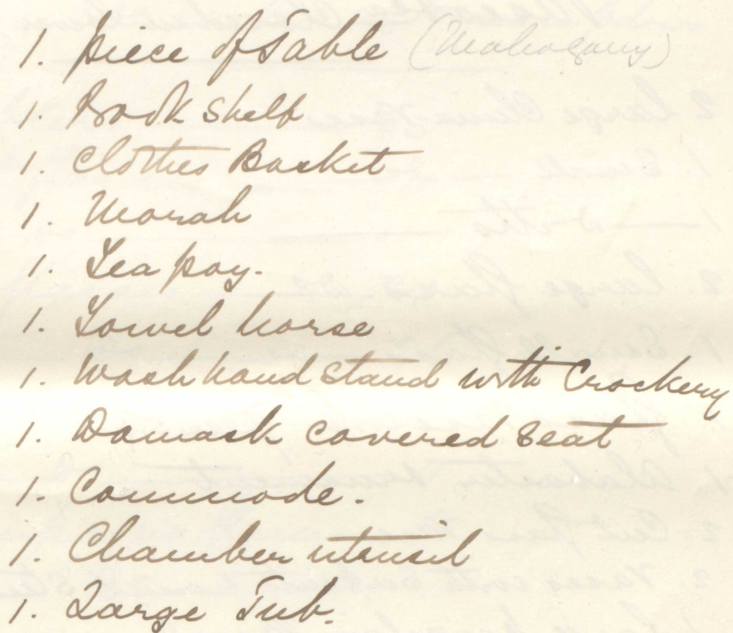 1. piece of Table (Mahogany)
1. Book Shelf
1. Clothes Basket
1. Morah
1. Teapoy.
1. Towel horse
1. Wash hand stand with Crockery
1. Damask covered seat
1. Commode.
1. Chamber utensil
1. Large Tub.